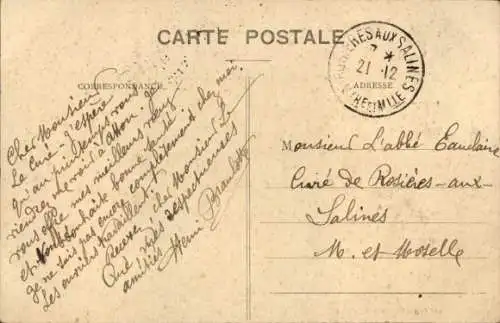 CARTE POSTALE
CORRESPONDANCE
ADRESSE
ROSIERES AUX SALINES
7 *
21-12
MEURTHE ET M^LLE
Cher Monsieur
Le Curé - J'espère
qu'au printemps vous
viendrez me voir à Atton. Je
vous offre mes meilleurs vœux
et vous souhaite bonne santé
je ne suis pas encore complètement chez moi
Les ouvriers travaillent
Recevez cher Monsieur Le
Curé mes respectueuses
amitiés Henri
Monsieur L'abbé
Curé de Rosières-aux-
Salines
M. et Moselle